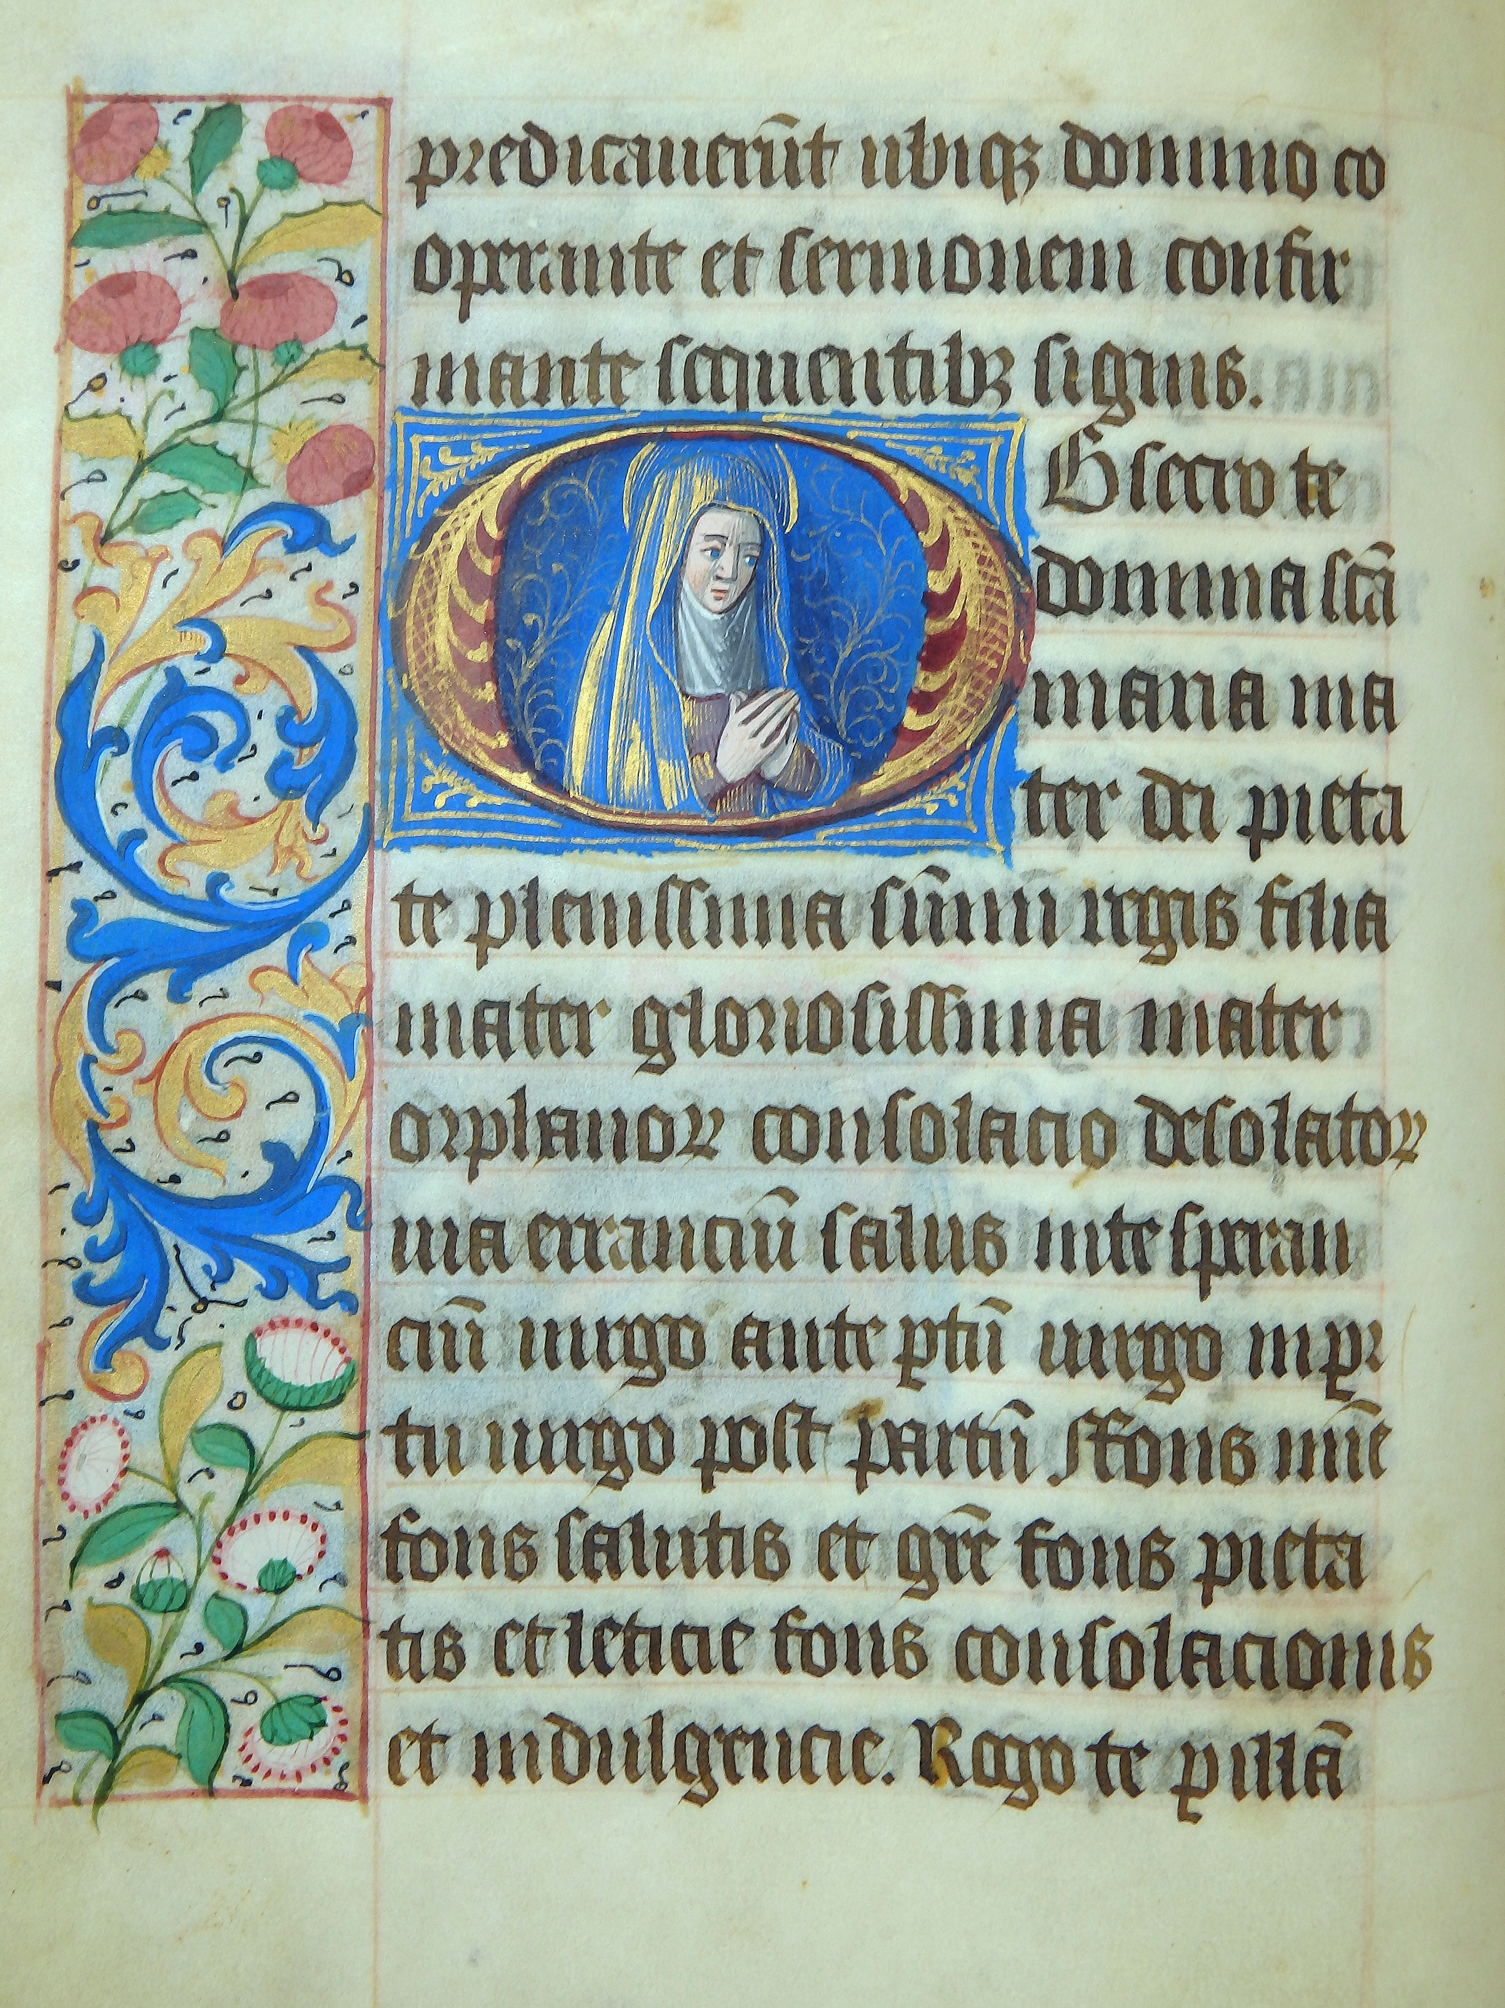 predicauerūt ubiqꝫ domino co
operante et sermonem confir
mante sequentibꝫ signis.
Obsecro te
domina scā
maria ma
ter dei pieta
te plenissima sūmi regis filia
mater gloriosissima mater
orphanoꝝ consolacio desolatoꝝ
uia erranciū salus in te speran
ciū uirgo ante ꝑtū uirgo in ꝑ
tu uirgo post partū ffons mīe
fons salutis et grē fons pieta
tis et leticie fons consolacionis
et indulgencie. Rogo te ꝑ illā